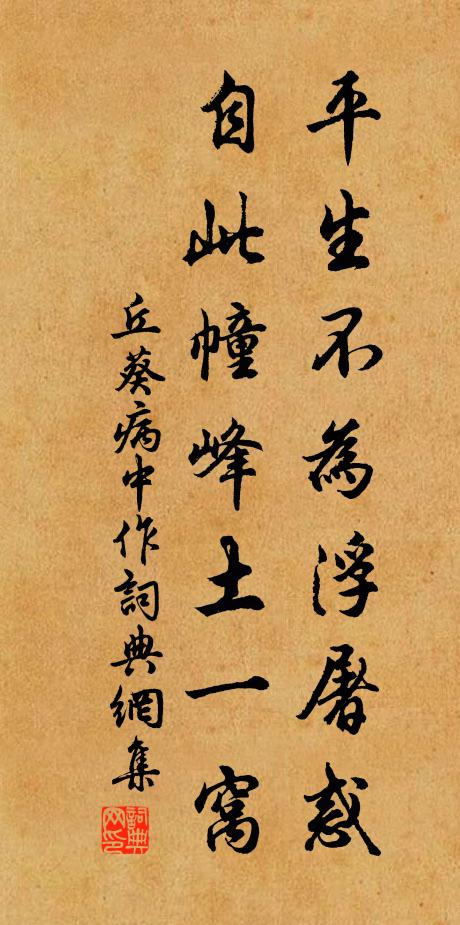 平生不為浮屠惑
自此幢峰土一窩
丘葵病中作詞典網集
詞典网印